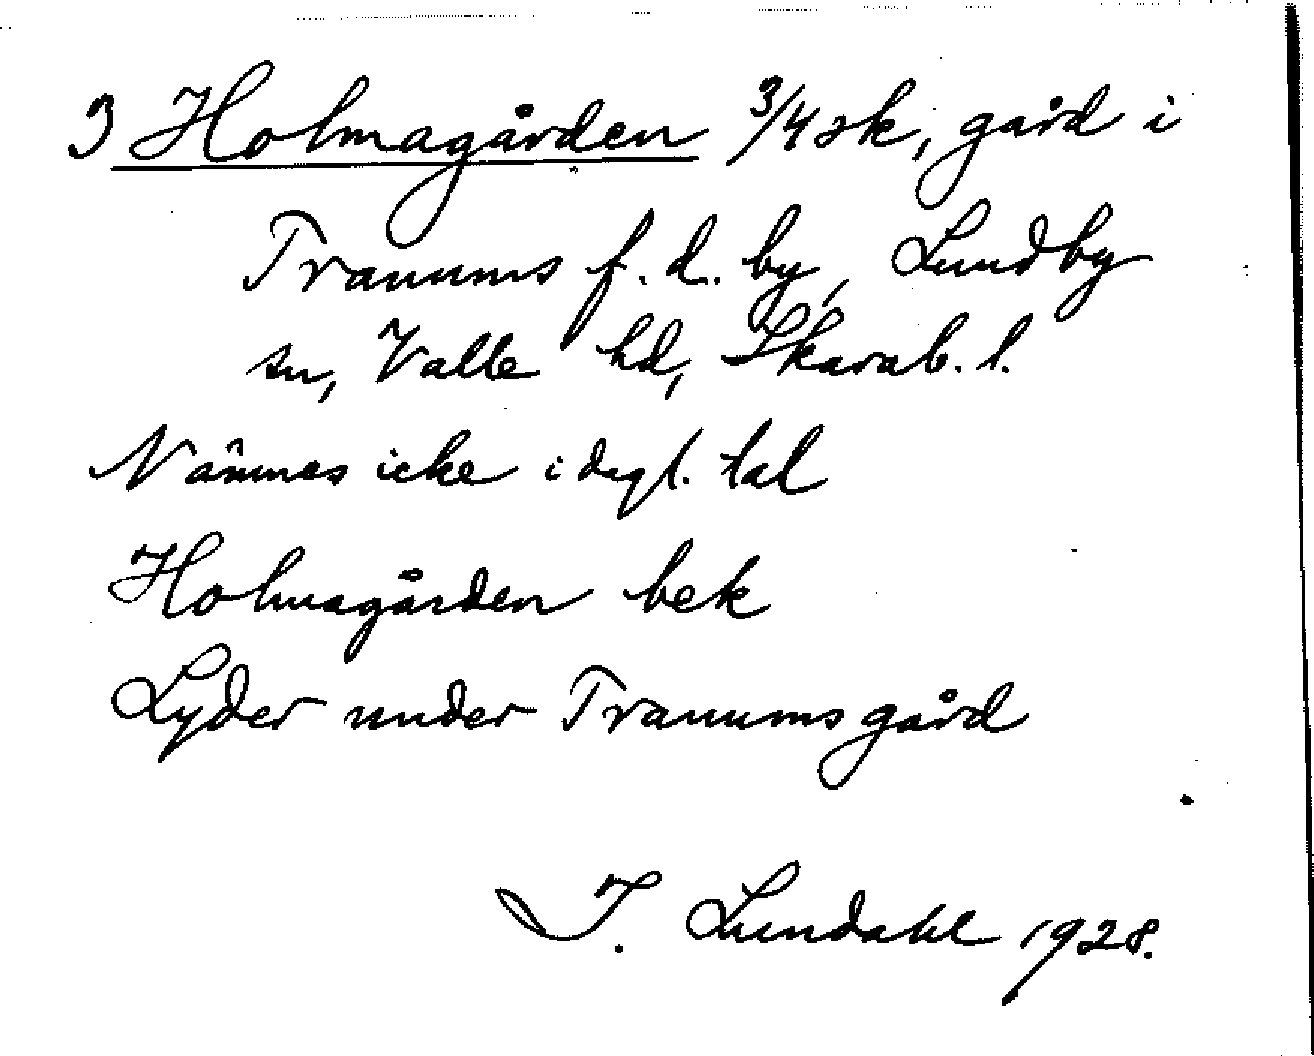 3 Holmagården 3/4 sk, gård i
Tranums f. d. by, Lundby
sn, Valle hd, Skarab. l.
Nämnes icke i dagl. tal
Holmagården bek
Lyder under Tranums gård
I. Lundahl 1928.